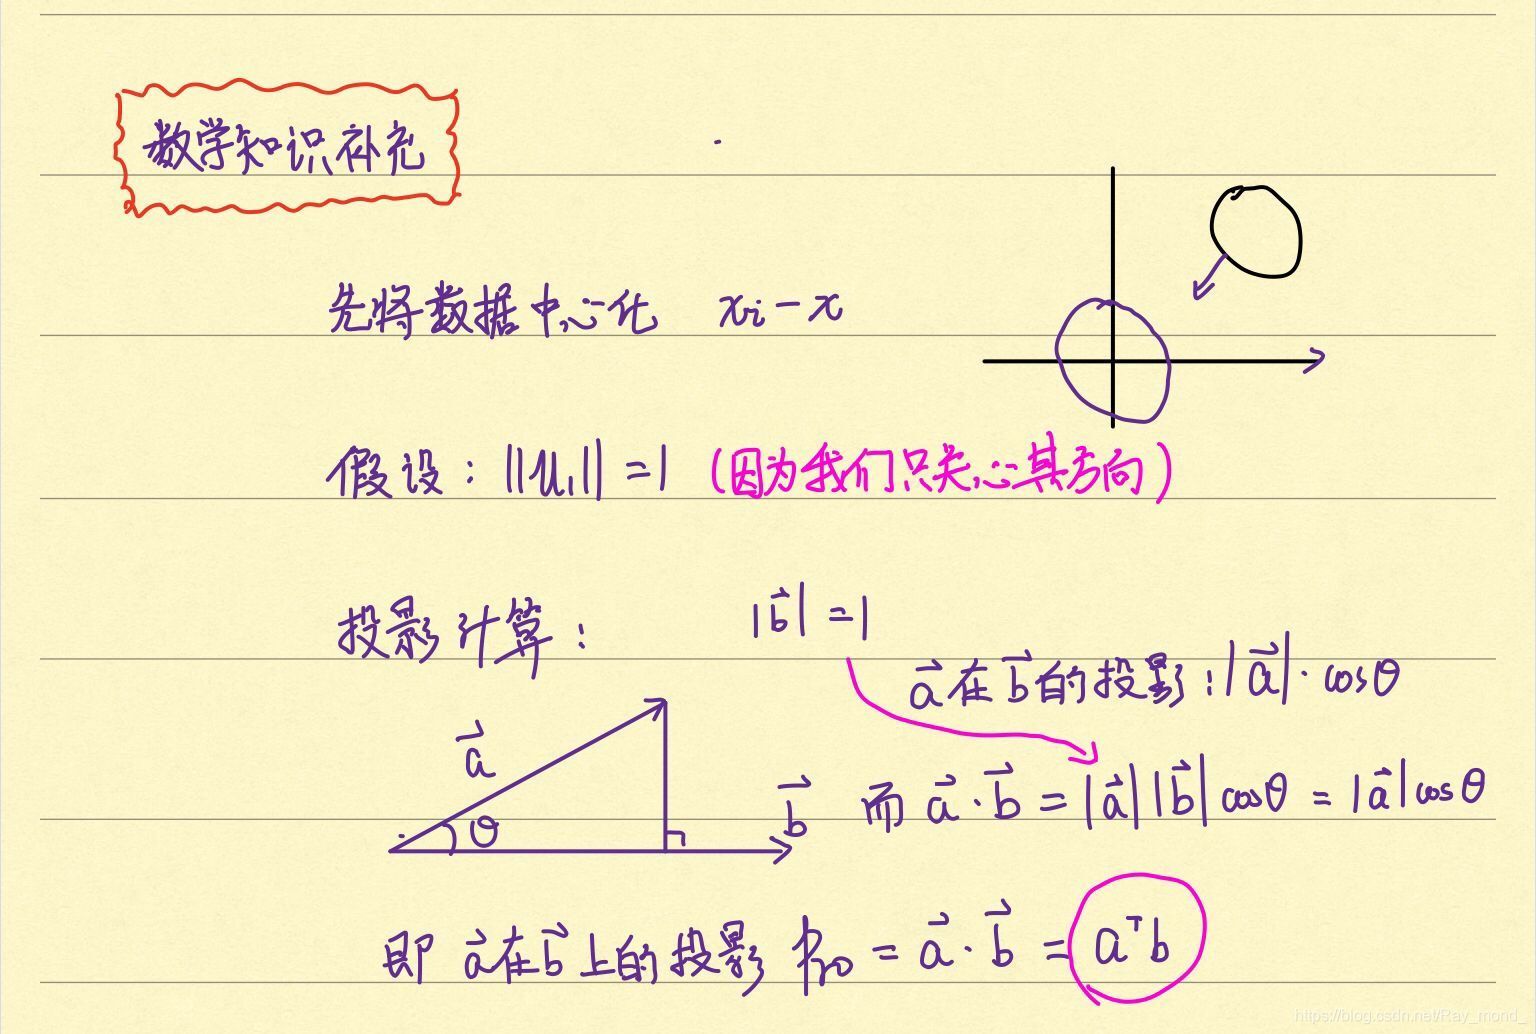 数学知识补充
先将数据中心化 xᵢ - x
假设: ||u₁|| = 1 (因为我们只关心其方向)
投影计算: |b⃗| = 1
a⃗在b⃗的投影: |a⃗| · cosθ
a⃗
θ
b⃗
而 a⃗ · b⃗ = |a⃗| |b⃗| cosθ = |a⃗| cosθ
即 a⃗在b⃗上的投影 pro = a⃗ · b⃗ = aᵀb
https://blog.csdn.net/Ray_mond_